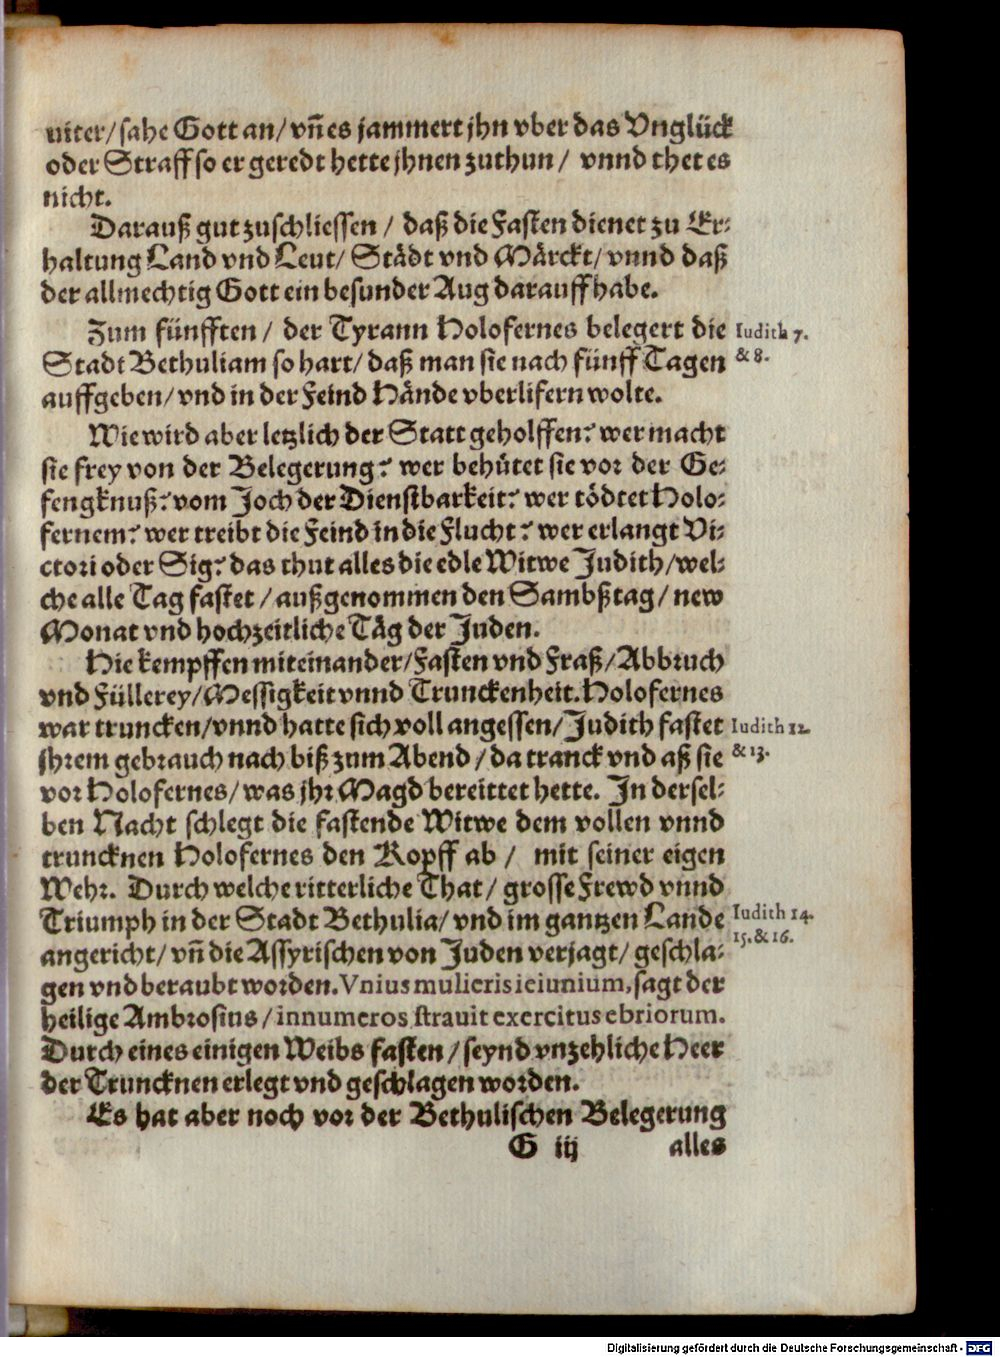 uiter/sahe Gott an/vñ es jammert jhn vber das Vnglück
oder Straff so er geredt hette jhnen zuthun/ vnnd thet es
nicht.
Darauß gut zuschliessen/ daß die Fasten dienet zu Er-
haltung Land vnd Leut/ Städt vnd Märckt/ vnnd daß
der allmechtig Gott ein besunder Aug darauff habe.
Zum fünfften/ der Tyrann Holofernes belegert die
Iudith 7.
Stadt Bethuliam so hart/ daß man sie nach fünff Tagen
& 8.
auffgeben/ vnd in der Feind Hände vberlifern wolte.
Wie wird aber letzlich der Statt geholffen? wer macht
sie frey von der Belegerung? wer behütet sie vor der Ge-
fengknuß? vom Joch der Dienstbarkeit? wer tödtet Holo-
fernem? wer treibt die Feind in die Flucht? wer erlangt Vi-
ctori oder Sig? das thut alles die edle Witwe Judith/wel-
che alle Tag fastet/ außgenommen den Sambßtag/ new
Monat vnd hochzeitliche Täg der Juden.
Hie kempffen miteinander/Fasten vnd Fraß/Abbruch
vnd Füllerey/Messigkeit vnnd Trunckenheit. Holofernes
war truncken/vnnd hatte sich voll angessen/Judith fastet
Iudith 12.
jhrem gebrauch nach biß zum Abend/ da tranck vnd aß sie
& 13.
vor Holofernes/ was jhr Magd bereittet hette. In dersel-
ben Nacht schlegt die fastende Witwe dem vollen vnnd
truncknen Holofernes den Kopff ab/ mit seiner eigen
Wehr. Durch welche ritterliche That/ grosse Frewd vnnd
Triumph in der Stadt Bethulia/ vnd im gantzen Lande
Iudith 14.
15. & 16.
angericht/ vñ die Assyrischen von Juden verjagt/ geschla-
gen vnd beraubt worden. Vnius mulieris ieiunium, sagt der
heilige Ambrosius/ innumeros strauit exercitus ebriorum.
Durch eines einigen Weibs fasten/ seynd vnzehliche Heer
der Truncknen erlegt vnd geschlagen worden.
Es hat aber noch vor der Bethulischen Belegerung
G iij
alles
Digitalisierung gefördert durch die Deutsche Forschungsgemeinschaft - DFG